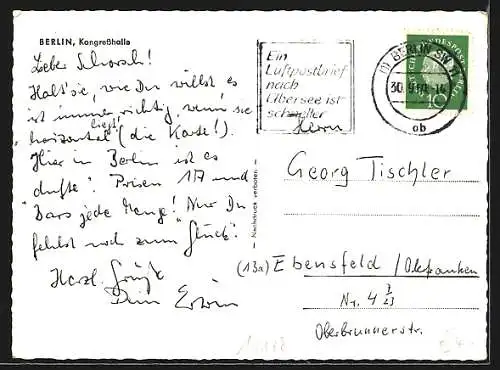 BERLIN, Kongreßhalle
Lieber Schorsch!
Halt' sie, wie Du willst es
ist immer richtig, wenn sie
"horizontal" liegt (die Karte!).
Hier in Berlin ist es
"dufte". Prisen 17 und
"Bars jede Menge! Nur Du
fehlst noch zum "Glück".
Herzl. Grüße
Dein Erwin
Nachdruck verboten
Ein
Luftpostbrief
nach
Übersee ist
schneller
(1) BERLIN SW 11
30.9.
ob
DEUTSCHE BUNDESPOST
10
Herrn
Georg Tischler
(13a) Ebensfeld / Obfranken
Nr. 4
Oberbrunnerstr.